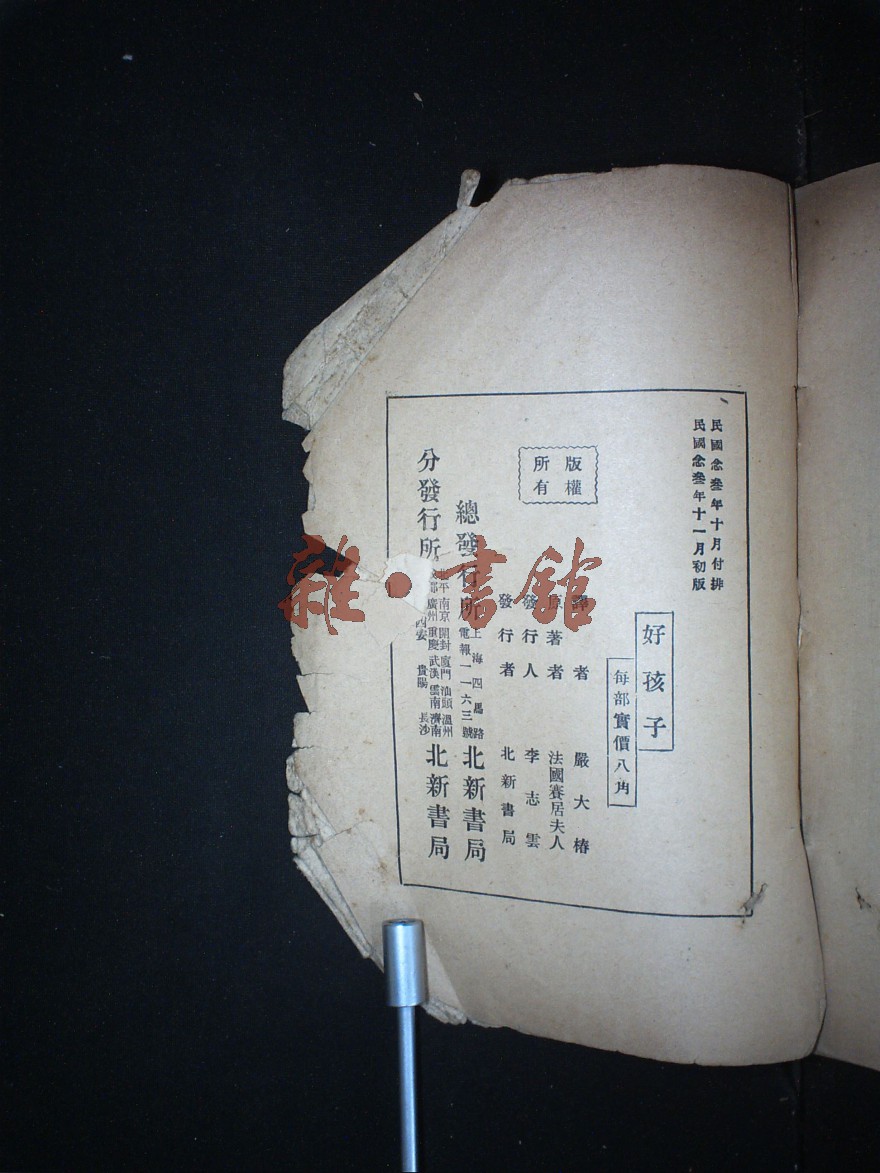 民國念叁年十月付排
民國念叁年十一月初版
好孩子
每部實價八角
版權
所有
譯者 嚴大椿
原著者 法國賽居夫人
發行人 李志雲
發行者 北新書局
總發行所 上海四馬路 電報一一六三號 北新書局
分發行所 平 南京 開封 廈門 汕頭 溫州 都 廣州 重慶 武漢 雲南 濟南 西安 貴陽 長沙 北新書局
雜·書館